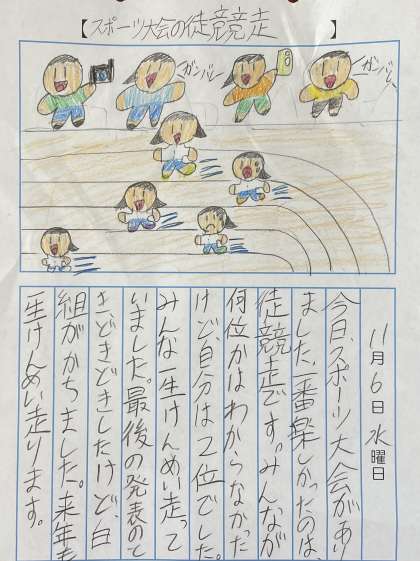 【スポーツ大会の徒競走】
ガンバレ
ガンバレ
11月6日水曜日
今日、スポーツ大会があり
ました。一番楽しかったのは、
徒競走です。みんなが
何位かはわからなかった
けど、自分は2位でした。
みんな一生けんめい走って
いました。最後の発表のと
き、どきどきしたけど、白
組がかちました。来年も
一生けんめい走ります。